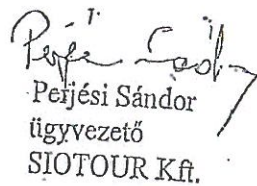 Perjési Sándor
ügyvezető
SIOTOUR Kft.